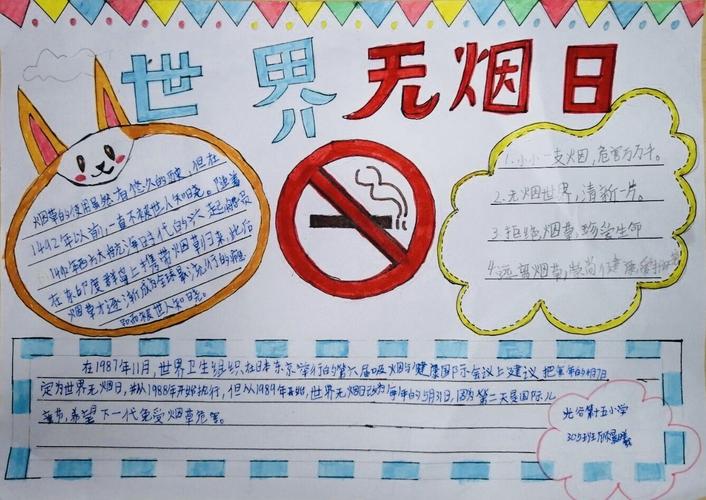 世界无烟日
烟草的使用虽然有悠久的历史，但在
1492年以前，一直不被世人知晓。随着
大航海时代的兴起
在东印度群岛上携带烟草归来，此后
烟草才逐渐成为全球最流行的
而被世人知晓。
1.小小一支烟，危害万万千。
2.无烟世界，清新一片。
3.拒绝烟草，珍爱生命
4.远离烟草，崇尚健康
在1987年11月，世界卫生组织在日本东京举行的第六届吸烟与健康国际会议上建议把每年的4月7日
定为世界无烟日，并从1988年开始执行，但从1989年开始，世界无烟日改为每年的5月31日，因为第二天是国际儿
童节，希望下一代免受烟草危害。
光谷第十五小学
305班